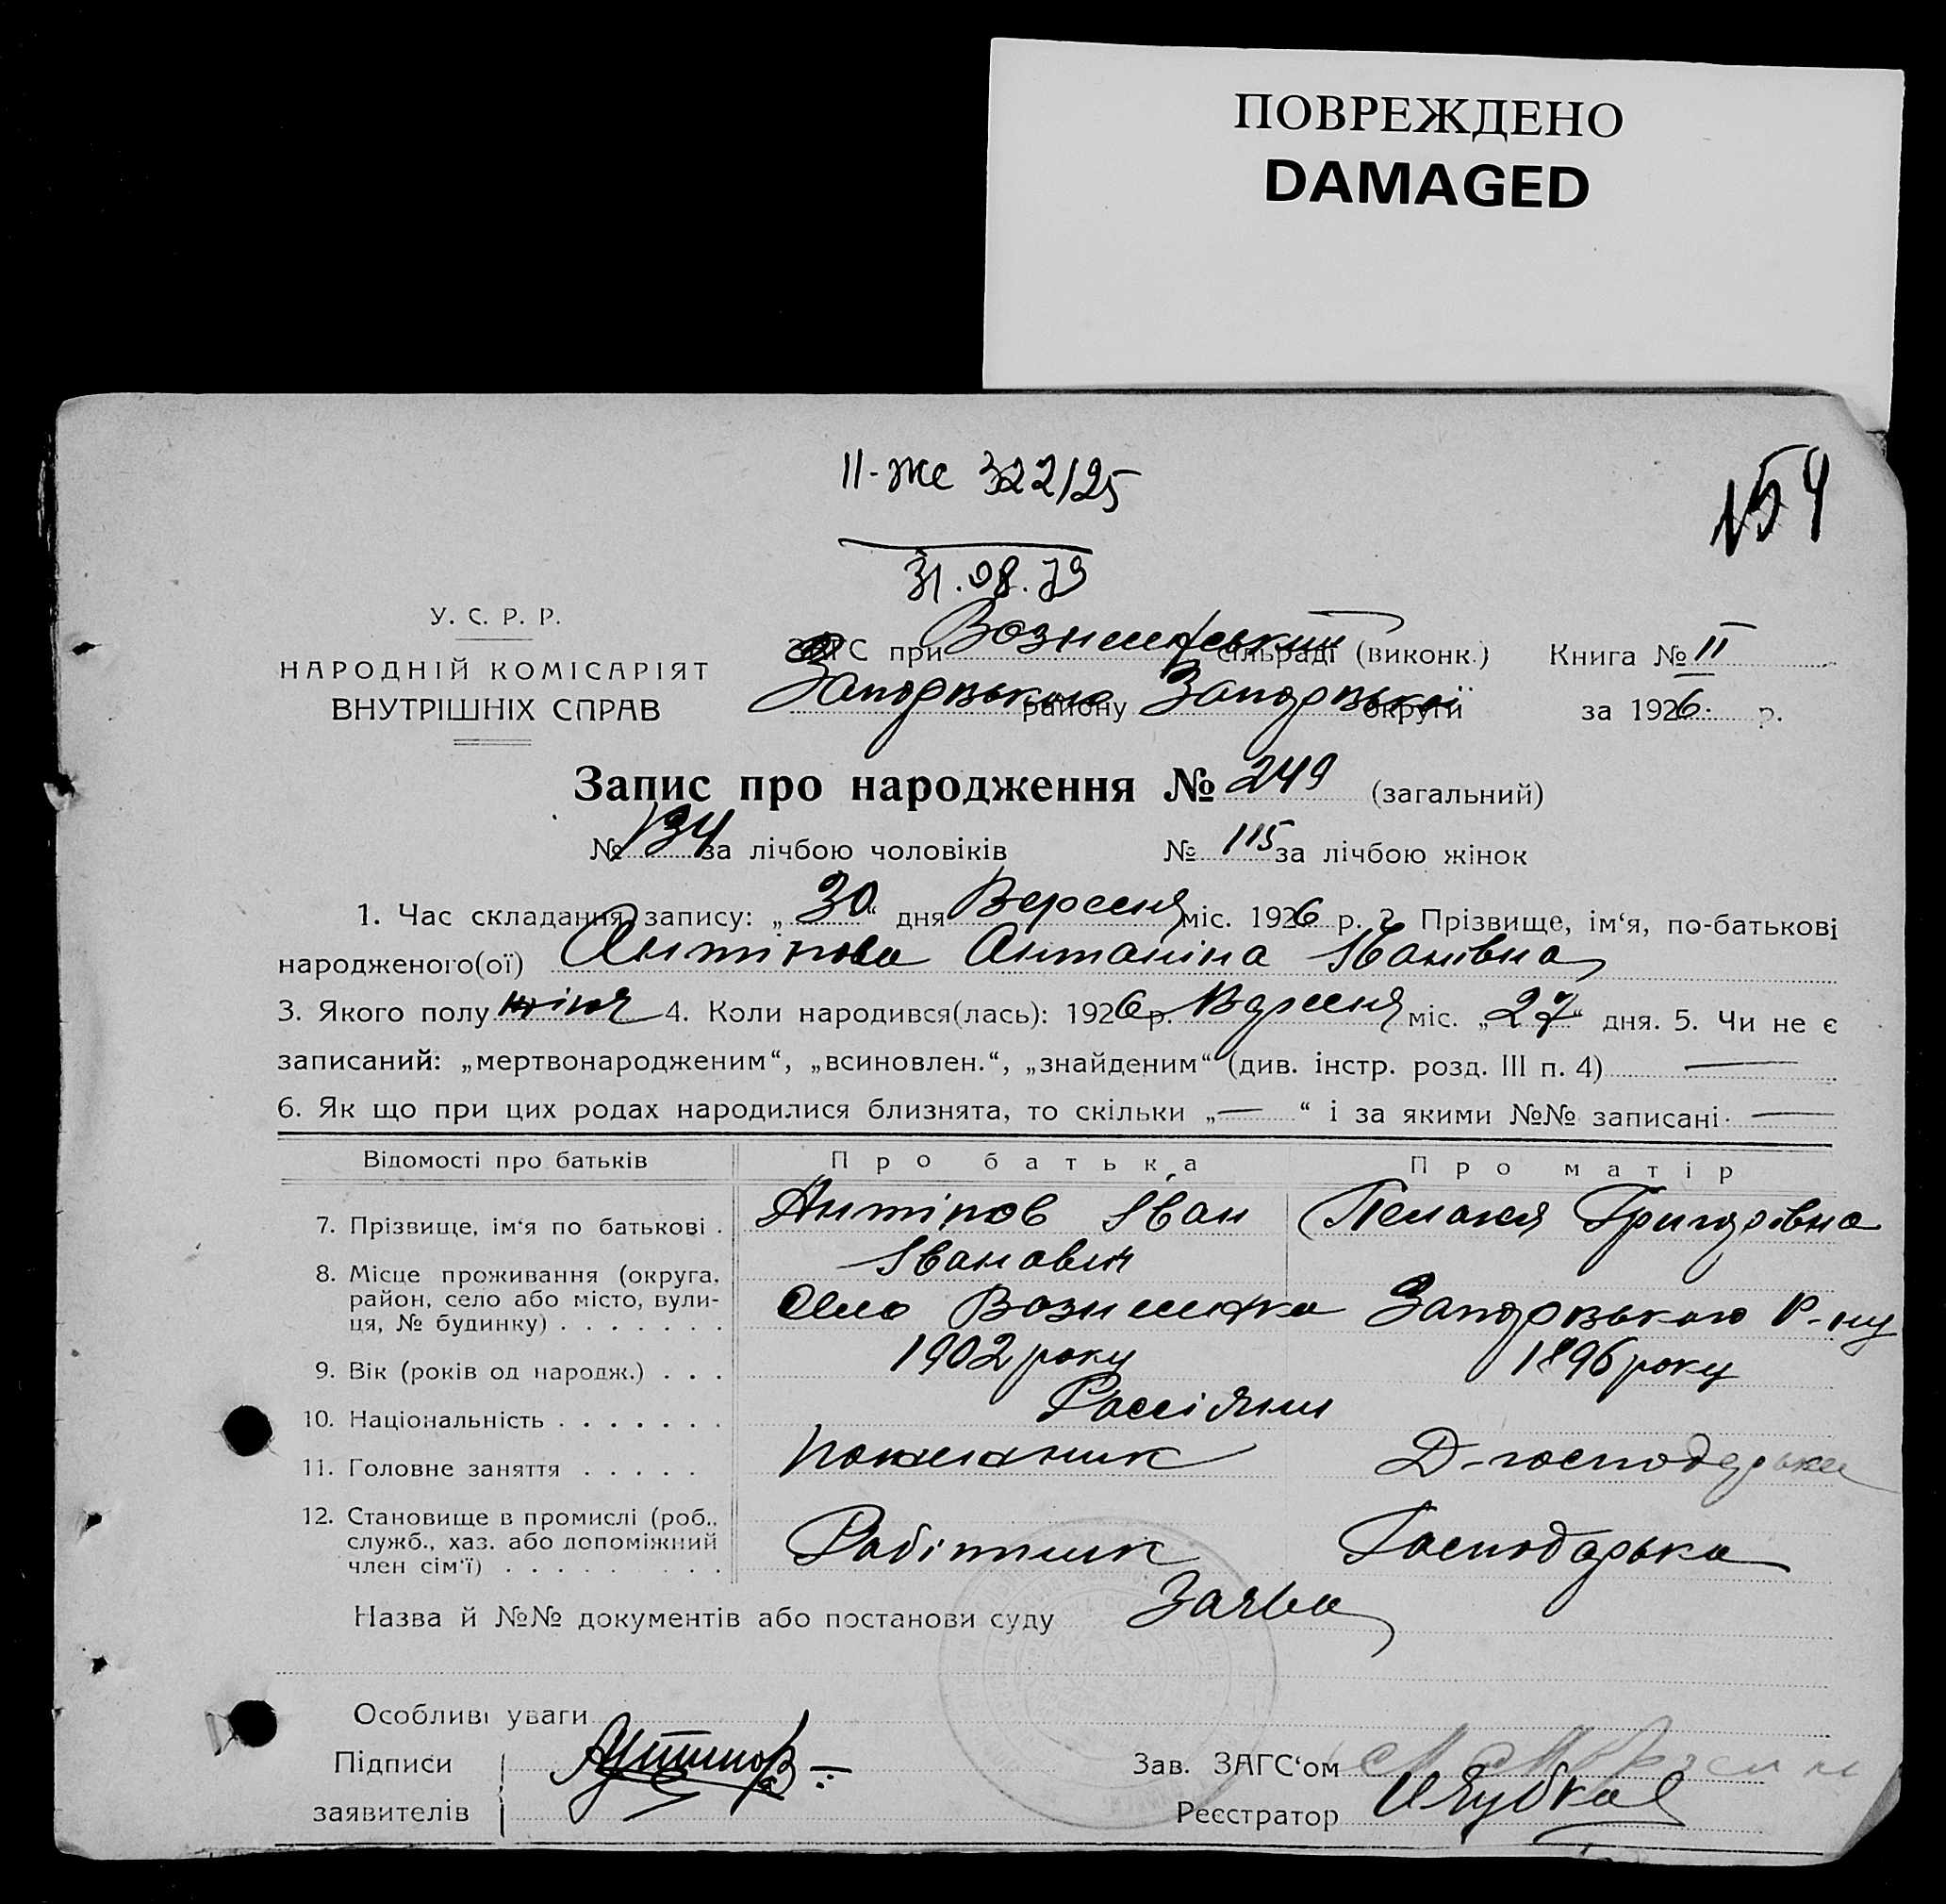 ПОВРЕЖДЕНО
DAMAGED
II-же 322/25
154
31.08.79
У. С. Р. Р.
НАРОДНІЙ КОМІСАРІЯТ
ВНУТРІШНІХ СПРАВ
ЗАГС при Вознишевський сільраді (виконк.) Книга № II
Запорізького району Запорізької округи за 1926. р.
Запис про народження № 249 (загальний)
№ 134 за лічбою чоловіків № 115 за лічбою жінок
1. Час складання запису: „30“ дня Вересня міс. 1926 р. 2 Прізвище, ім‘я, по-батькові
народженого(ої) Антіпова Антаніна Іванівна
3. Якого полу жіноч 4. Коли народився(лась): 1926 р. Вересня міс. „27“ дня. 5. Чи не є
записаний: „мертвонародженим“, „всиновлен.“, „знайденим“ (див. інстр. розд. III п. 4) —
6. Як що при цих родах народилися близнята, то скільки „—“ і за якими №№ записані —
Відомості про батьків Про батька Про матір
7. Прізвище, ім‘я по батькові Антіпов Іван Іванович Пелагея Григорівна
8. Місце проживання (округа, район, село або місто, вулиця, № будинку) Село Запорізького Р-ну
9. Вік (років од народж.) 1902 року 1896 року
10. Національність Россіяни
11. Головне заняття Д-господарька
12. Становище в промислі (роб., служб., хаз. або допоміжний член сім‘ї) Робітник Господарька
Назва й №№ документів або постанови суду Заява
Особливі уваги
Підписи
заявителів
Зав. ЗАГС‘ом
Реєстратор